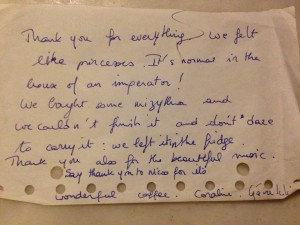 Thank you for everything we felt
like princesses. It's normal in the
house of an imperator!
We bought some mizythra and
we couldn't finish it and don't dare
to carry it : we left it in the fridge.
Thank you also for the beautiful music.
Say thank you to Nico for its
wonderful coffee. Coraline.